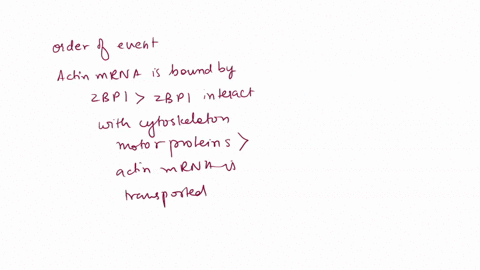 order of event
Actin mRNA is bound by
ZBP1 > ZBP1 interact
with cytoskeleton
motor proteins >
actin mRNA is
transported